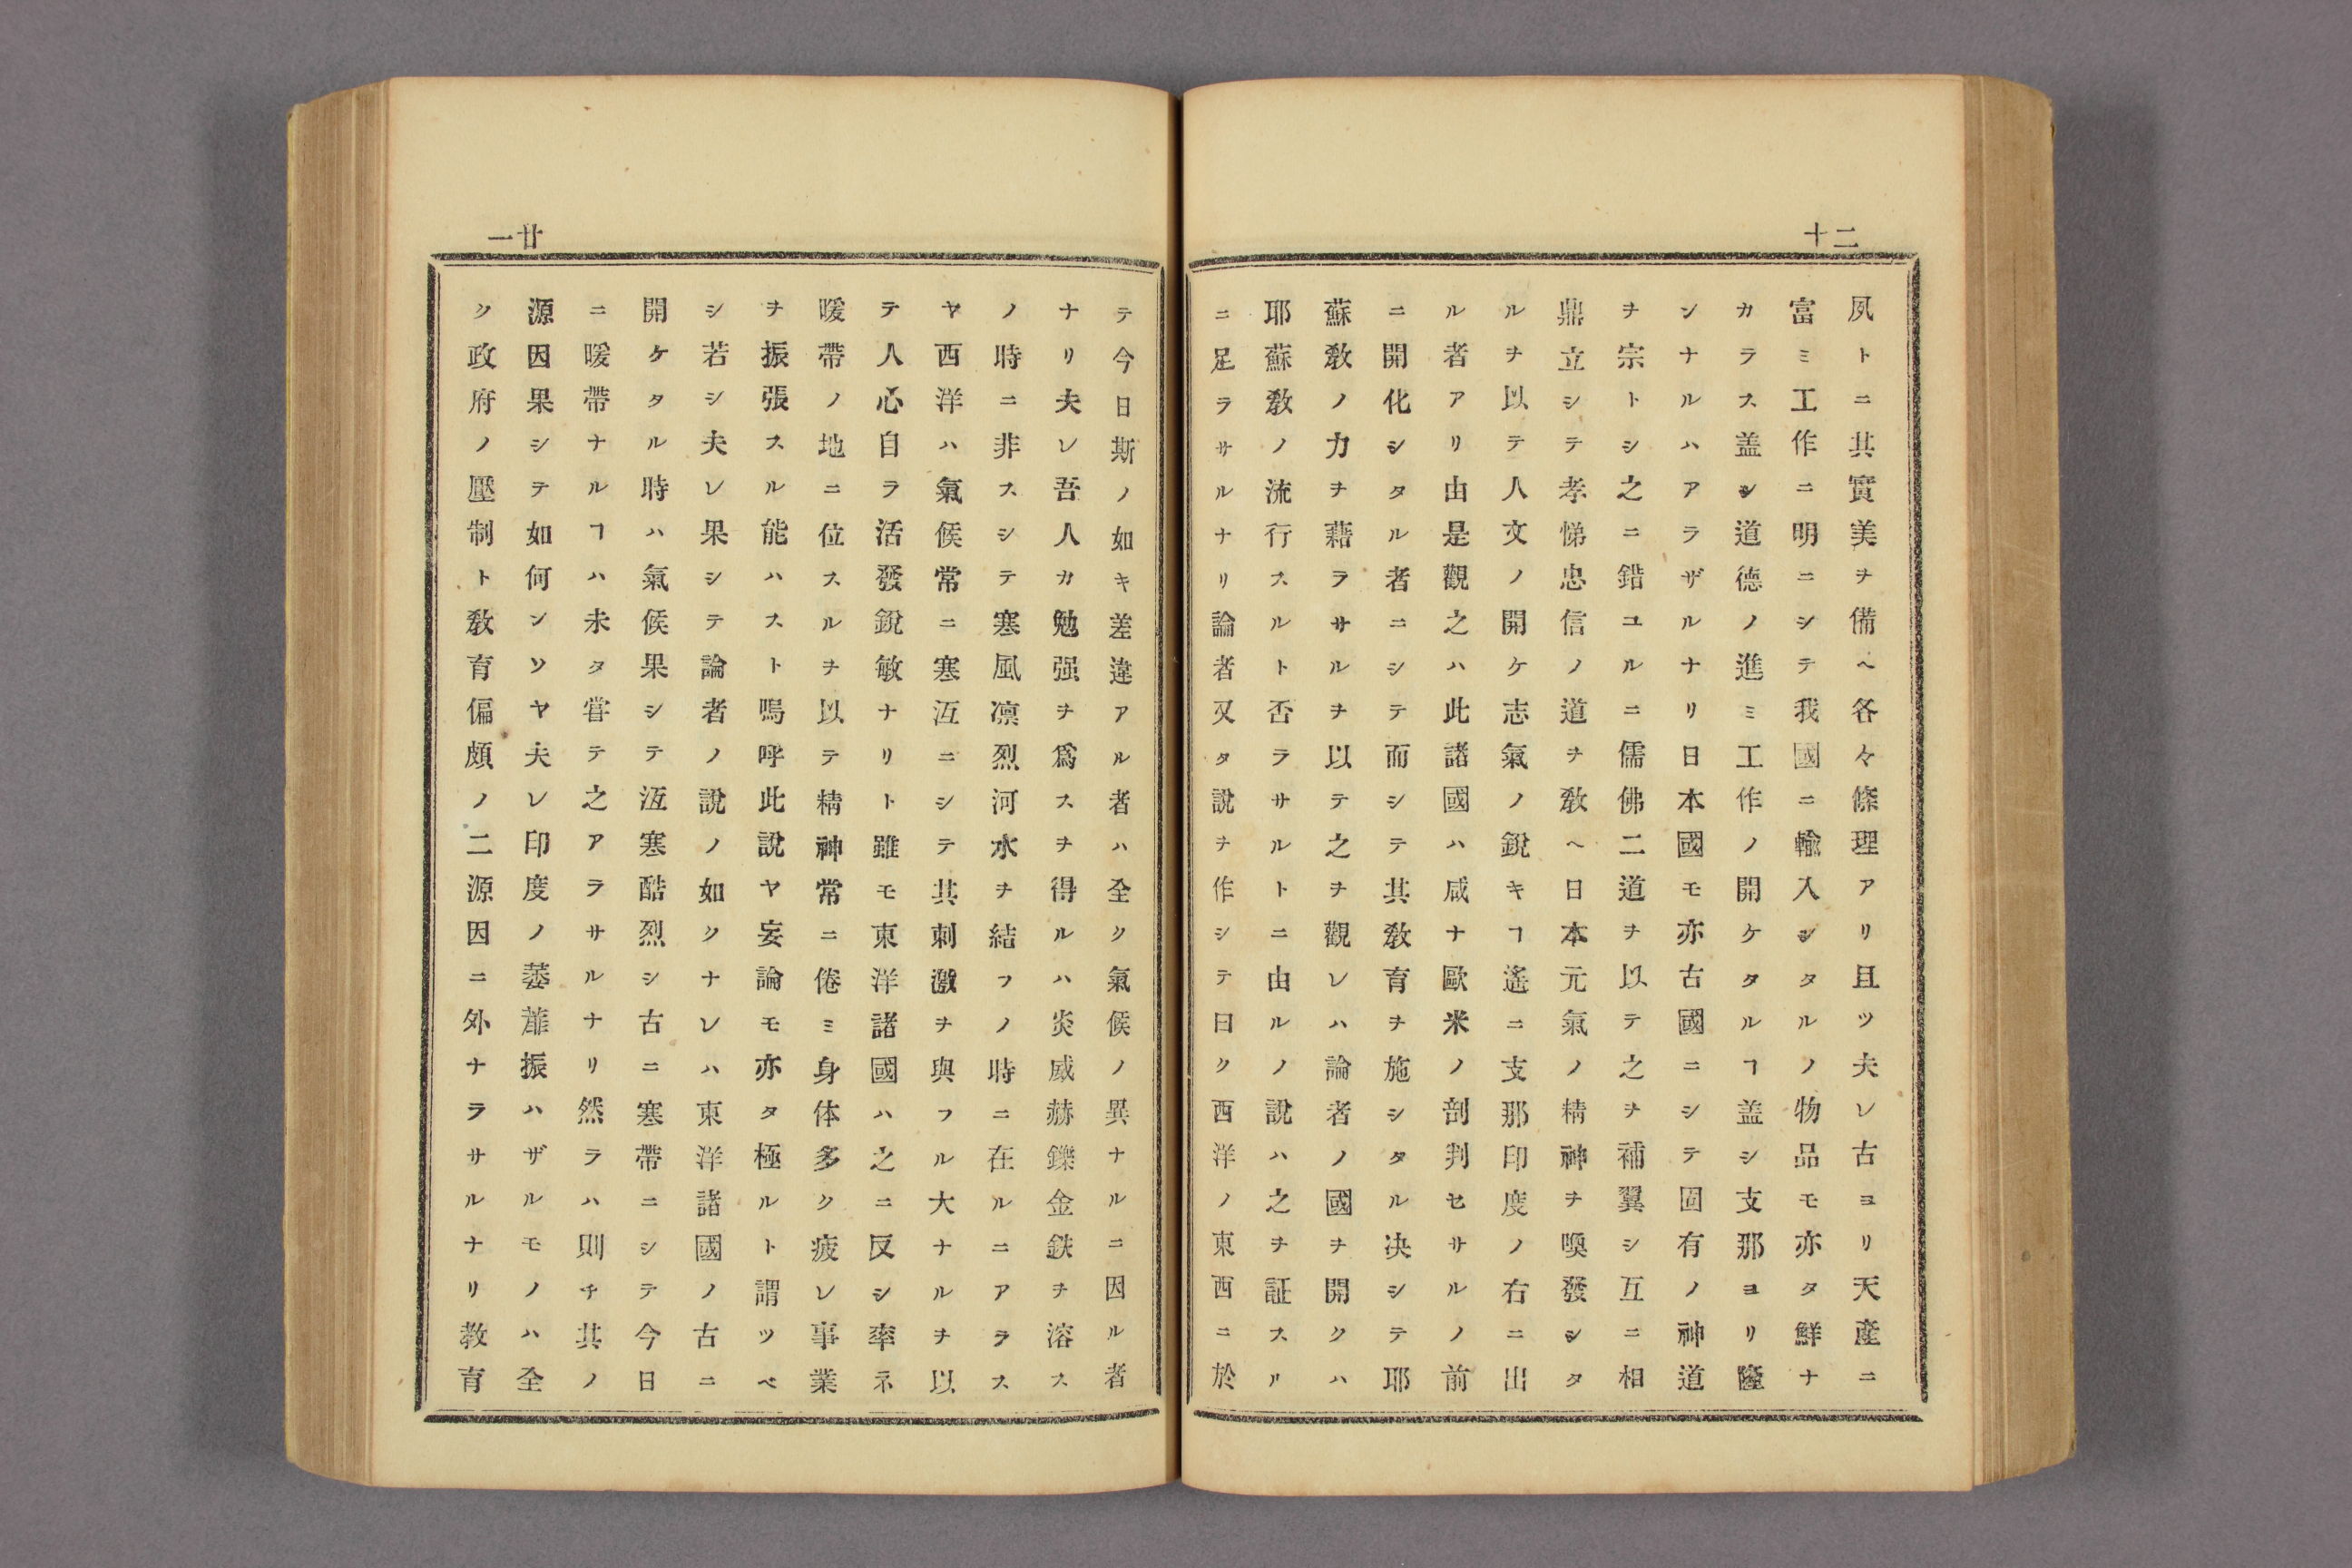 二十
夙トニ其實美ヲ備ヘ各々條理アリ且ツ夫レ古ヨリ天產ニ
富ミ工作ニ明ニシテ我國ニ輸入シタルノ物品モ亦タ鮮ナ
カラス盖シ道德ノ進ミ工作ノ開ケタルヿ盖シ支那ヨリ隆
ンナルハアラザルナリ日本國モ亦古國ニシテ固有ノ神道
ヲ宗トシ之ニ錯ユルニ儒佛二道ヲ以テ之ヲ補翼シ互ニ相
鼎立シテ孝悌忠信ノ道ヲ敎ヘ日本元氣ノ精神ヲ喚發シタ
ルヲ以テ人文ノ開ケ志氣ノ銳キヿ遙ニ支那印度ノ右ニ出
ル者アリ由是觀之ハ此諸國ハ咸ナ歐米ノ剖判セサルノ前
ニ開化シタル者ニシテ而シテ其敎育ヲ施シタル决シテ耶
蘇敎ノ力ヲ藉ラサルヲ以テ之ヲ觀レハ論者ノ國ヲ開クハ
耶蘇敎ノ流行スルト否ラサルトニ由ルノ說ハ之ヲ証スル
ニ足ラサルナリ論者又タ說ヲ作シテ曰ク西洋ノ東西ニ於
廿一
テ今日斯ノ如キ差違アル者ハ全ク氣候ノ異ナルニ因ル者
ナリ夫レ吾人カ勉强ヲ爲スヲ得ルハ炎威赫鑠金鉄ヲ溶ス
ノ時ニ非スシテ寒風凛烈河水ヲ結フノ時ニ在ルニアラス
ヤ西洋ハ氣候常ニ寒沍ニシテ其刺激ヲ與フル大ナルヲ以
テ人心自ラ活發銳敏ナリト雖モ東洋諸國ハ之ニ反シ率ネ
暖帶ノ地ニ位スルヲ以テ精神常ニ倦ミ身体多ク疲レ事業
ヲ振張スル能ハスト嗚呼此說ヤ妄論モ亦タ極ルト謂ツベ
シ若シ夫レ果シテ論者ノ說ノ如クナレハ東洋諸國ノ古ニ
開ケタル時ハ氣候果シテ沍寒酷烈シ古ニ寒帶ニシテ今日
ニ暖帶ナルヿハ未タ嘗テ之アラサルナリ然ラハ則チ其ノ
源因果シテ如何ンソヤ夫レ印度ノ萎靡振ハザルモノハ全
ク政府ノ壓制ト敎育偏頗ノ二源因ニ外ナラサルナリ敎育